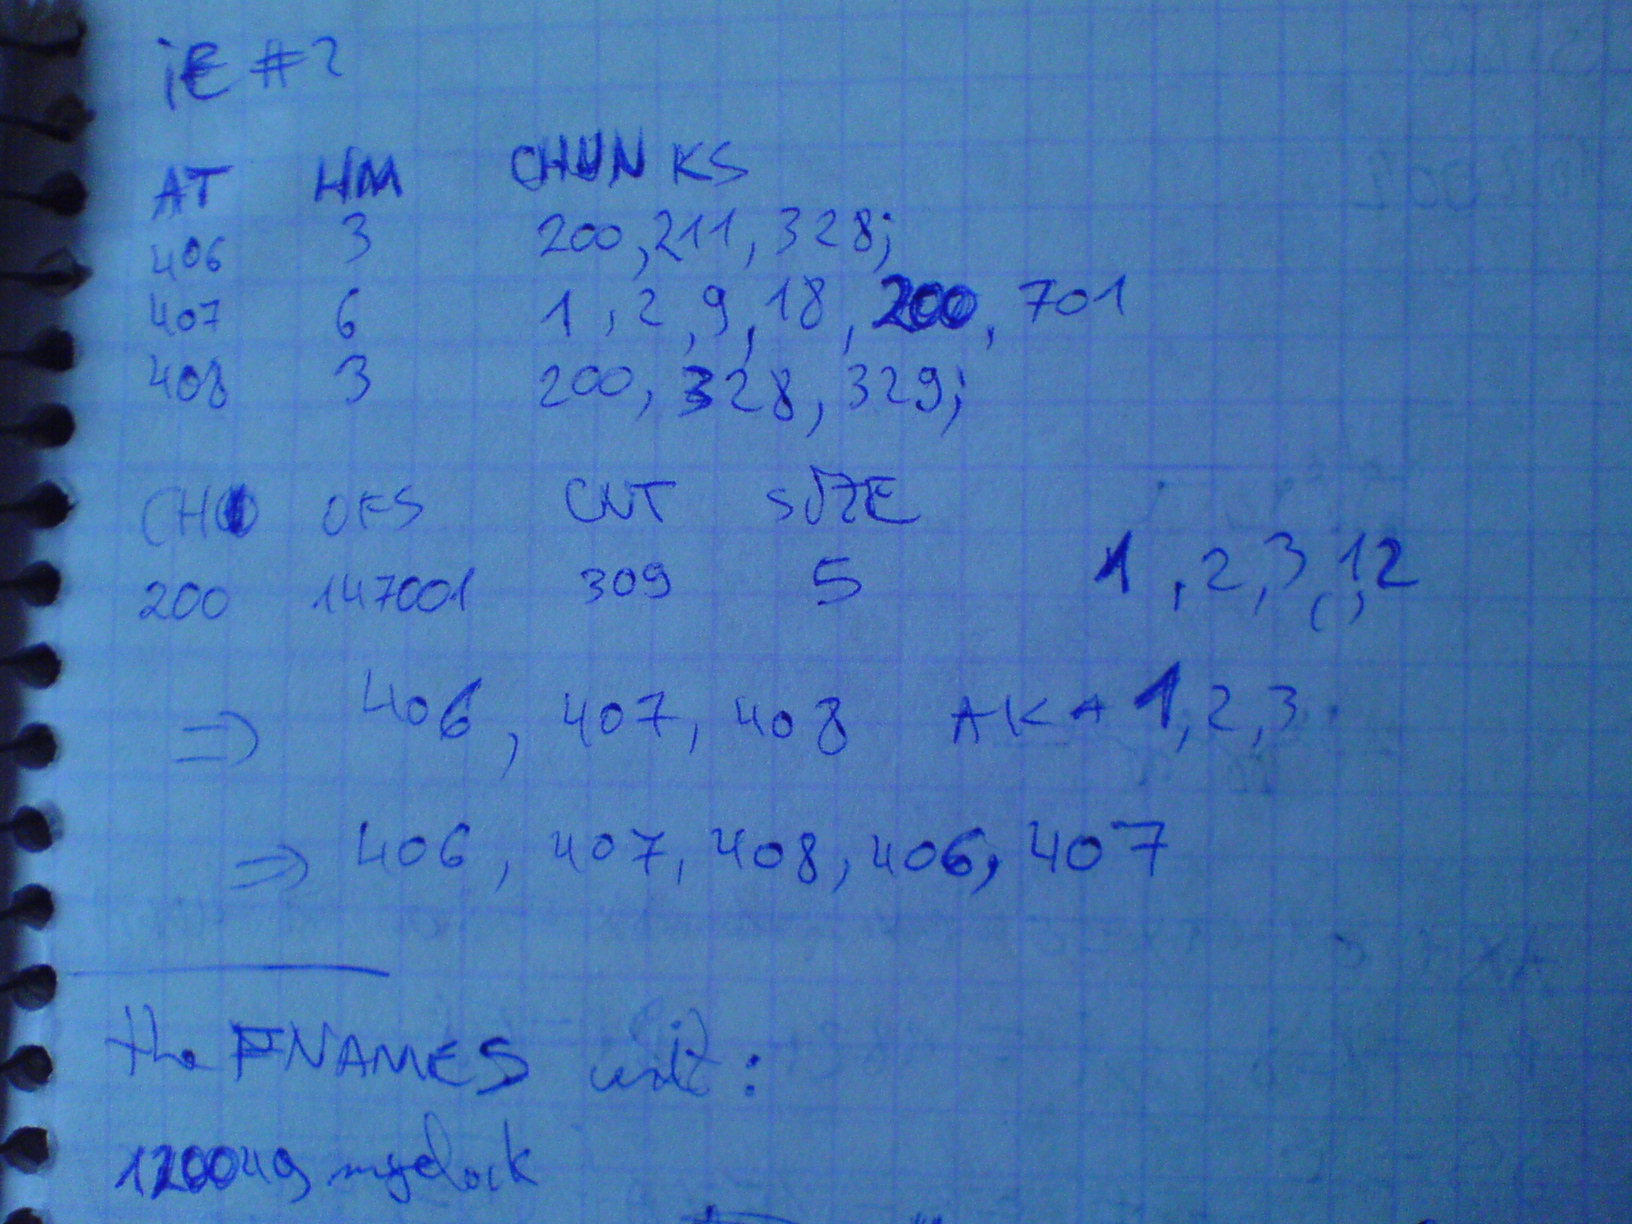 iE #2
AT HM CHUNKS
406 3 200,211,328;
407 6 1,2,9,18,200,701
408 3 200,328,329;
OFS CNT SIZE
200 147001 309 5 1,2,3,12
=> 406, 407, 408 AKA 1,2,3
=> 406, 407, 408, 406, 407
the FNAMES unit:
120049